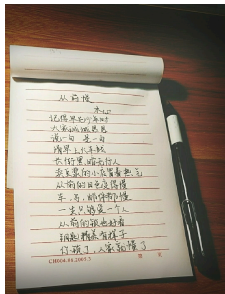 从前慢
木心
记得早先少年时
大家诚诚恳恳
说一句 是一句
清早上火车站
长街黑暗无行人
卖豆浆的小店冒着热气
从前的日色变得慢
车，马，邮件都慢
一生只够爱一个人
从前的锁也好看
钥匙精美有样子
你锁了，人家就懂了